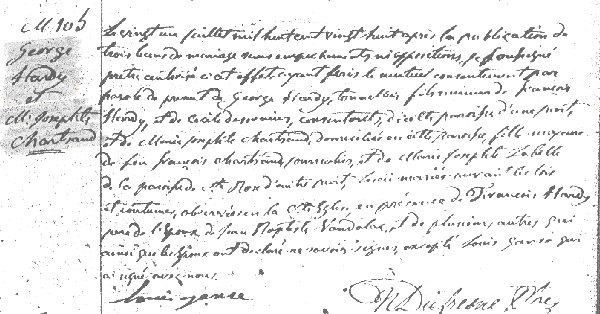 M 105
George
Hardy
et
M. Josephte
Chartrand
Le vingt un juillet mil huit cent vingt huit après la publication de
trois bans de mariage sans empêchements ni oppositions, je soussigné
prêtre autorisé à cet effet ayant pris le mutuel consentement par
parole de present de George Hardy, tonnellier fils mineur de François
Hardy, et de Cécile desnoiers, consentants, de cette paroisse d'une part,
et de Marie Josephte Chartrand, domiciliée en cette paroisse, fille majeure
de feu françois Chartrand, et de Marie Josephte Labelle
de la paroisse de Ste Rose d'autre part, les ai mariés suivant les lois
et coutumes, observées en la Ste Eglise, en présence de François Hardy
pere de l'Epoux de Jean Baptiste Vandelac, et de plusieurs autres qui
ainsi que les Epoux ont déclaré ne savoir signer, excepté Louis ganse qui
a signé avec nous.
Louis ganse
N Dufresne Ptre